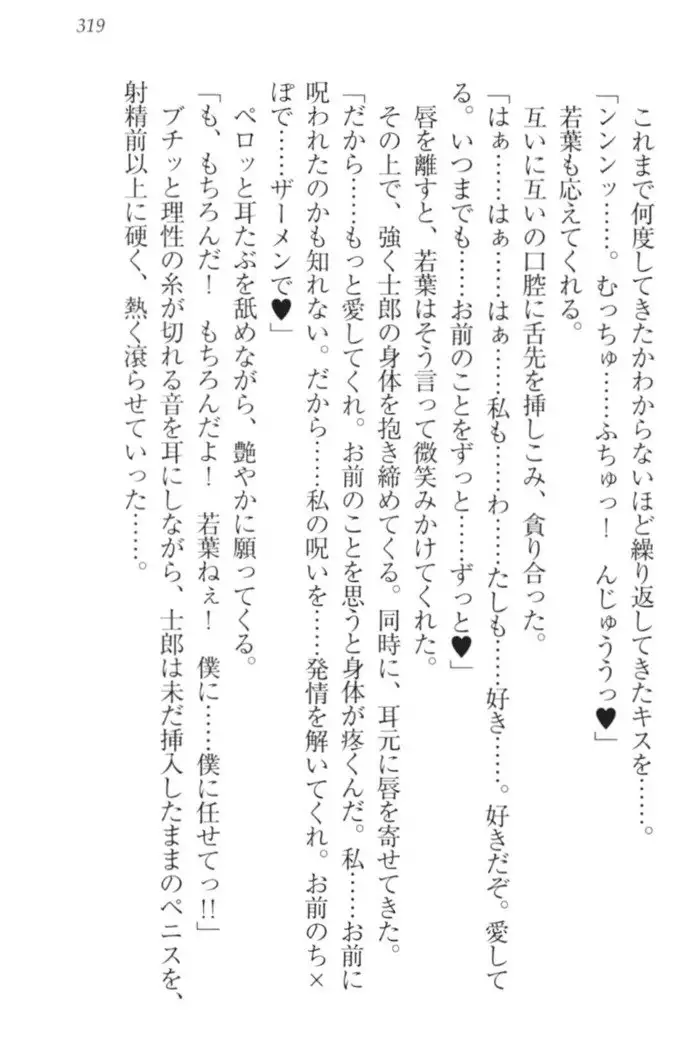 319
これまで何度してきたかわからないほど繰り返してきたキスを……。
「ンンンッ……。むっちゅ……ふちゅっ！　んじゅううっ♥」
若葉も応えてくれる。
互いに互いの口腔に舌先を挿しこみ、貪り合った。
「はぁ……はぁ……はぁ……私も……わ……たしも……好き……。好きだぞ。愛して
る。いつまでも……お前のことをずっと……ずっと♥」
唇を離すと、若葉はそう言って微笑みかけてくれた。
その上で、強く士郎の身体を抱き締めてくる。同時に、耳元に唇を寄せてきた。
「だから……もっと愛してくれ。お前のことを思うと身体が疼くんだ。私……お前に
呪われたのかも知れない。だから……私の呪いを……発情を解いてくれ。お前のち×
ぽで……ザーメンで♥」
ペロッと耳たぶを舐めながら、艶やかに願ってくる。
「も、もちろんだ！　もちろんだよ！　若葉ねぇ！　僕に……僕に任せてっ!!」
ブチッと理性の糸が切れる音を耳にしながら、士郎は未だ挿入したままのペニスを、
射精前以上に硬く、熱く滾らせていった……。